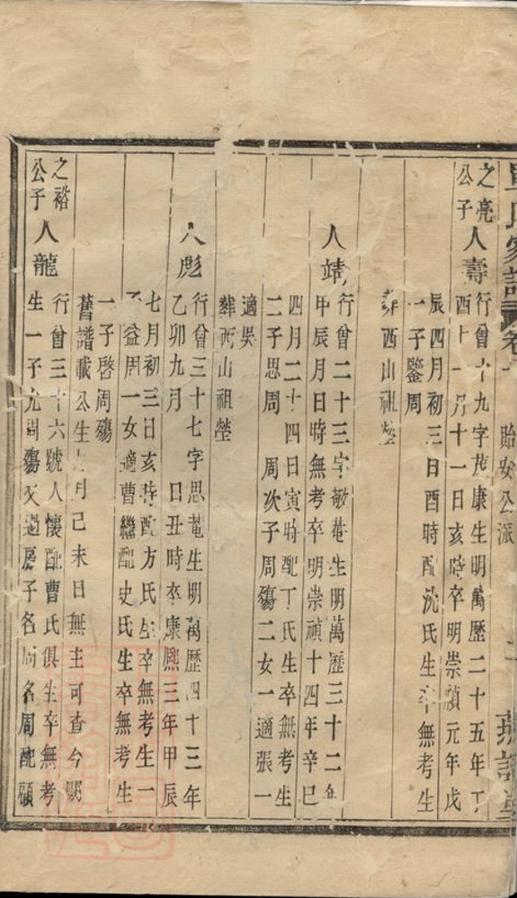 氏家譜 卷 貽安公派
之亮公子 人壽 行曾十九字茂康生明萬歷二十五年丁
酉十一月十一日亥時卒明崇禎元年戊
辰四月初三日酉時配沈氏生卒無考生
一子鑒周
葬西山祖塋
人靖 行曾二十三字敏菴生明萬歷三十二年
甲辰月日時無考卒明崇禎十四年辛巳
四月二十四日寅時配丁氏生卒無考生
二子思周 周次子周殤二女一適張一
適吳
葬西山祖塋
人彪 行曾三十七字思菴生明萬歷四十三年
乙卯九月 日丑時卒康熙三年甲辰
七月初三日亥時配方氏生卒無考生一
子益周一女適曹繼配史氏生卒無考生
一子啓周殤
舊譜載公生 月己未日無主可查今闕
之裕公子 人龍 行曾三十六號人懷配曹氏俱生卒無考
生一子九周殤又過房子名周配顧